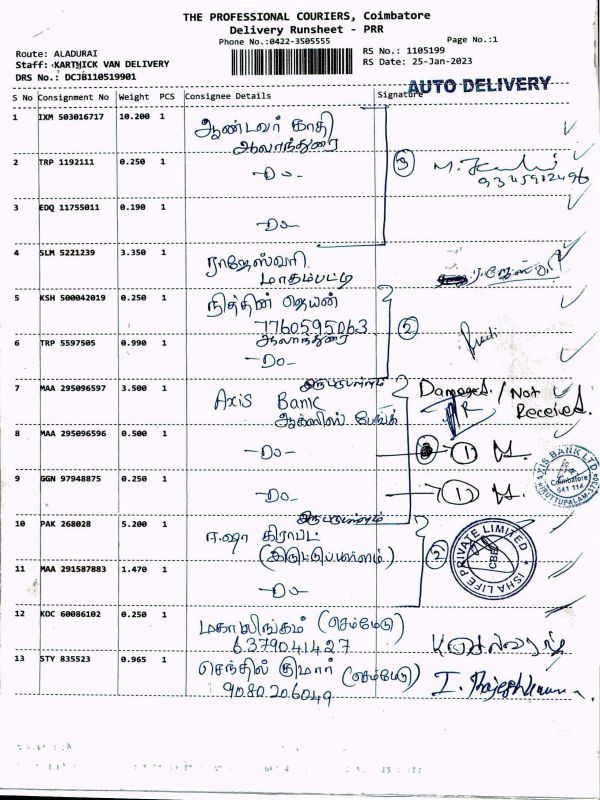 THE PROFESSIONAL COURIERS, Coimbatore
Delivery Runsheet - PRR
Phone No.:0422-3505555
Page No.:1
Route: ALADURAI
RS No.: 1105199
Staff: KARTHICK VAN DELIVERY
RS Date: 25-Jan-2023
DRS No.: DCJB110519901
AUTO DELIVERY
S No Consignment No Weight PCS Consignee Details Signature
1 IXM 503016717 10.200 1 ஆண்டவர் காதி
ஆலாந்துறை
2 TRP 1192111 0.250 1 -Do- 3
9345902496
3 EDQ 11755011 0.190 1 -Do-
4 SLM 5221239 3.350 1 ராஜேஸ்வரி
மாதம்பட்டி
5 KSH 500042019 0.250 1 நித்தின் ஜெயன்
7760595063 2
6 TRP 5597505 0.990 1 ஆலாந்துறை
-Do-
7 MAA 295096597 3.500 1 Axis Bank Damaged. / Not Received.
ஆக்ஸிஸ் பேங்க்
8 MAA 295096596 0.500 1 -Do- 1
9 GGN 97948875 0.250 1 -Do- 1
AXIS BANK LTD
Coimbatore
641 114
10 PAK 268028 5.200 1 ஈஷா கிராப்ட்
(இருட்டுப்பள்ளம்) 2
ISHA LIFE PRIVATE LIMITED
CBE
11 MAA 291587883 1.470 1 -Do-
12 KOC 60086102 0.250 1 மகாலிங்கம் (செம்மேடு)
6379041427
13 STY 835523 0.965 1 செந்தில் குமார் (செம்மேடு)
9080206049